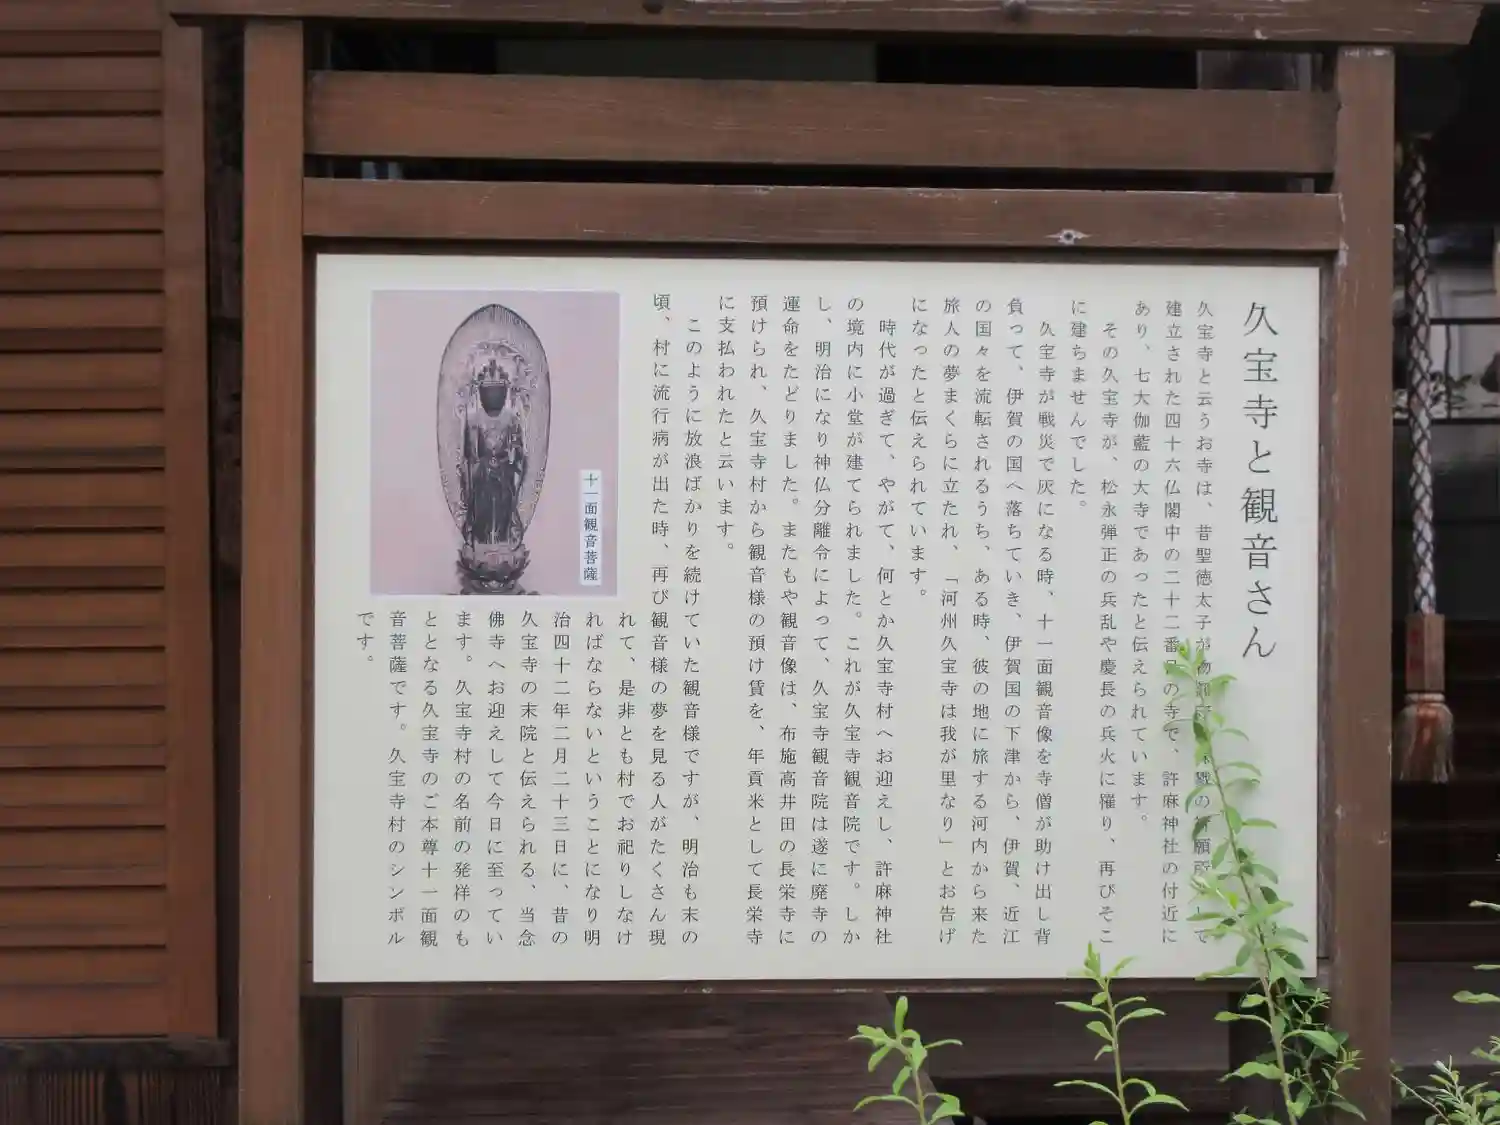 久宝寺と観音さん
久宝寺と云うお寺は、昔聖徳太子が
戦の祈願所として
建立された四十六仏閣中の二十二番目の寺で、許麻神社の付近に
あり、七大伽藍の大寺であったと伝えられています。
その久宝寺が、松永弾正の兵乱や慶長の兵火に罹り、再びそこ
に建ちませんでした。
久宝寺が戦災で灰になる時、十一面観音像を寺僧が助け出し背
負って、伊賀の国へ落ちていき、伊賀国の下津から、伊賀、近江
の国々を流転されるうち、ある時、彼の地に旅する河内から来た
旅人の夢まくらに立たれ、「河州久宝寺は我が里なり」とお告げ
になったと伝えられています。
時代が過ぎて、やがて、何とか久宝寺村へお迎えし、許麻神社
の境内に小堂が建てられました。これが久宝寺観音院です。しか
し、明治になり神仏分離令によって、久宝寺観音院は遂に廃寺の
運命をたどりました。またもや観音像は、布施高井田の長栄寺に
預けられ、久宝寺村から観音様の預け賃を、年貢米として長栄寺
に支払われたと云います。
このように放浪ばかりを続けていた観音様ですが、明治も末の
頃、村に流行病が出た時、再び観音様の夢を見る人がたくさん現
れて、是非とも村でお祀りしなけ
ればならないということになり明
治四十二年二月二十三日に、昔の
久宝寺の末院と伝えられる、当念
佛寺へお迎えして今日に至ってい
ます。久宝寺村の名前の発祥のも
ととなる久宝寺のご本尊十一面観
音菩薩です。久宝寺村のシンボル
です。
十一面観音菩薩